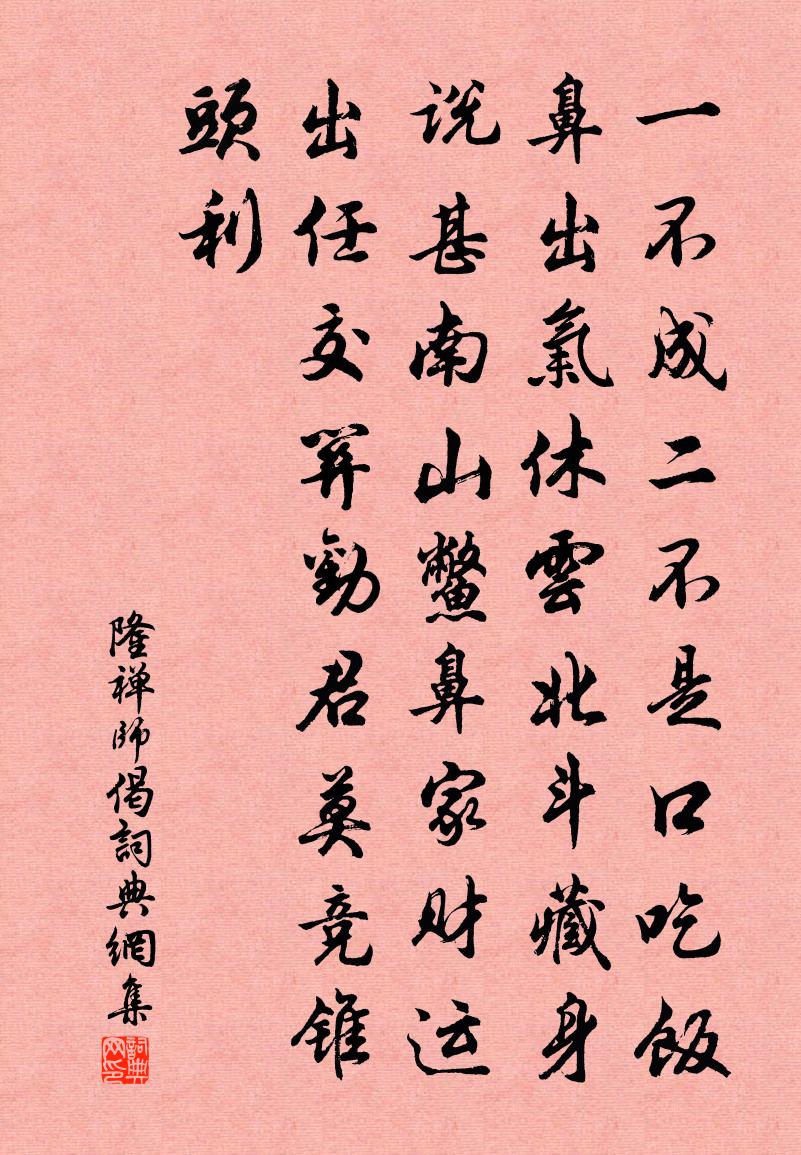 一不成二不是口吃飯
鼻出氣休雲北斗藏身
说甚南山鱉鼻家财运
出任交筭勸君莫竞锥
頭利
隆禅師偈詞典網集
詞典网印